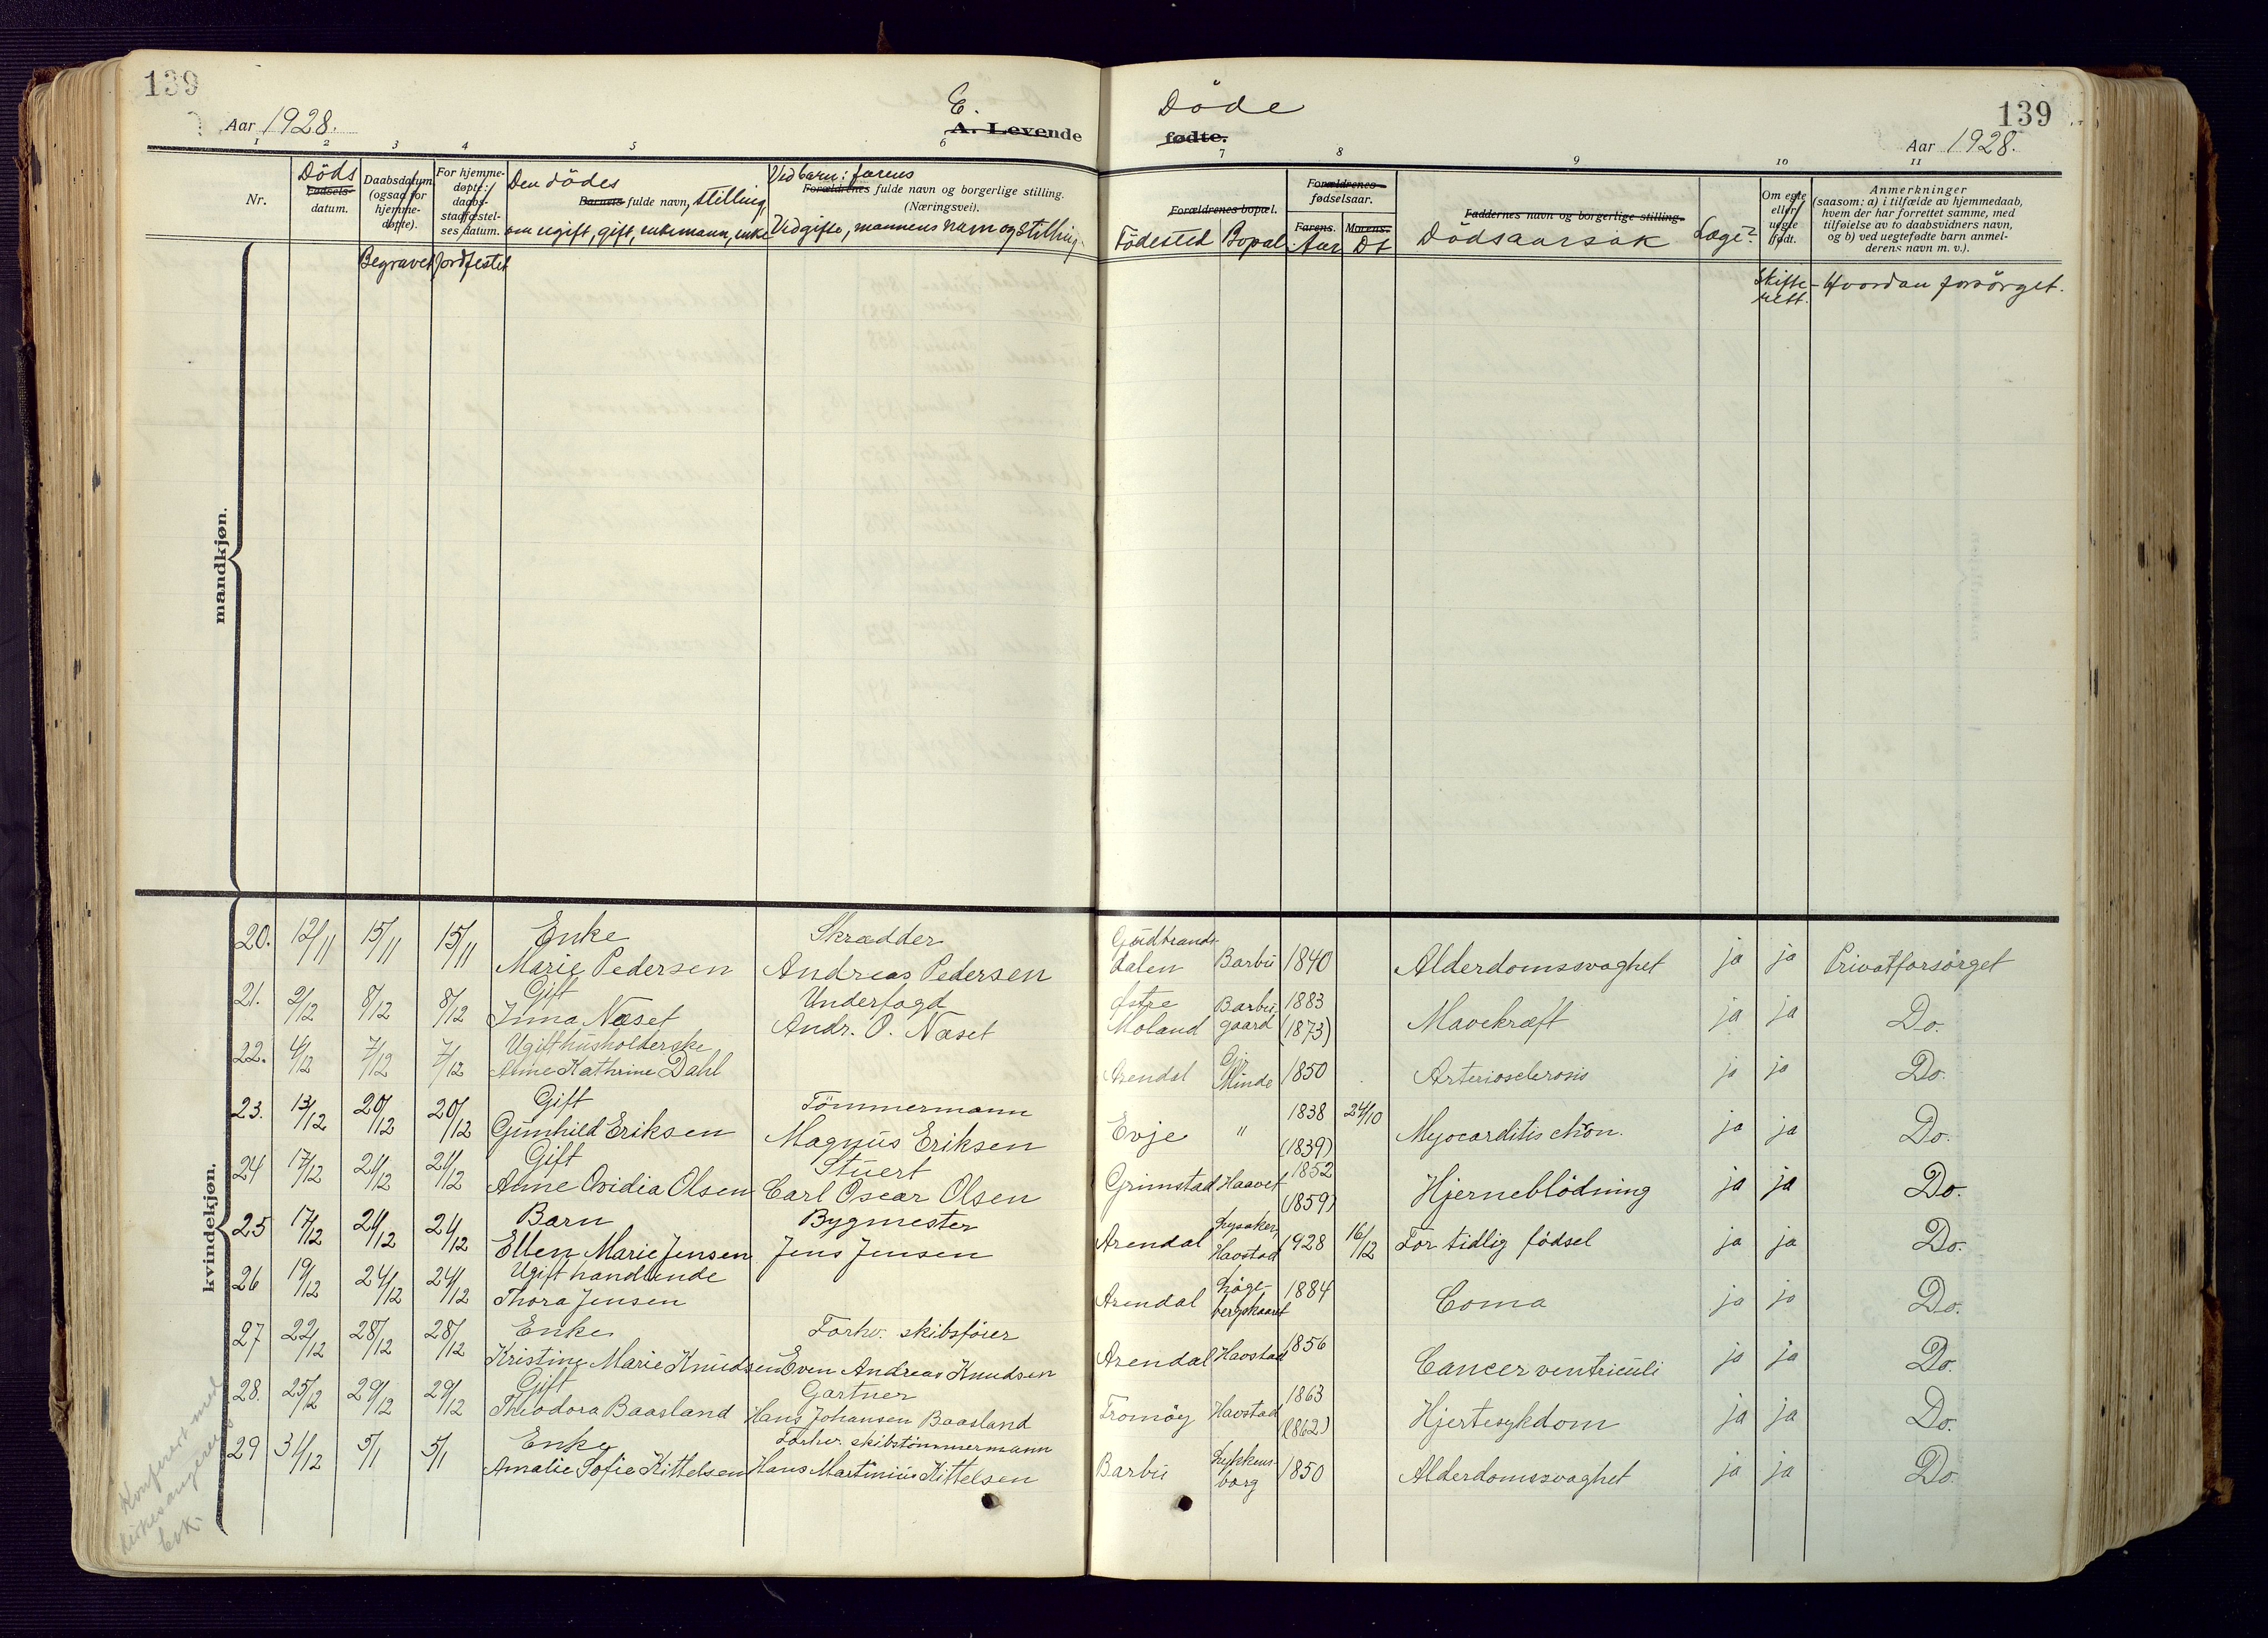 139
Aar 1928.
E.
A. Levende
1 2 3 4 5 6
Nr.
Döds
Fødsels-
datum.
Daabsdatum
(ogsaa for
hjemme-
døpte).
For hjemme-
døpte:
daabs-
stadfæstel-
ses datum.
Den dödes
Barnets fulde navn, stilling,
om ugift, gift, enkemann, enke
Ved barn: farens
Forældrenes fulde navn og borgerlige stilling.
(Næringsvei).
Ved gifte, mannens navn og stilling.
Begravet
Jordfestet
mandkjøn.
kvindekjøn.
20. 12/11 15/11 15/11 Enke Skrædder
Marie Pedersen Andreas Pedersen
21. 2/12 8/12 8/12 Gift Underfogd
Inna Næset Andr. O. Næset
22. 4/12 7/12 7/12 Ugift husholderske
Anne Kathrine Dahl
23. 13/12 20/12 20/12 Gift Tömmermann
Gunhild Eriksen Magnus Eriksen
24 17/12 21/12 21/12 Gift Stuert
Anne Ovidia Olsen Carl Oscar Olsen
25 17/12 21/12 21/12 Barn Bygmester
Ellen Marie Jensen Jens Jensen
26 19/12 24/12 24/12 Ugift handlende
Thora Jensen
27 22/12 28/12 28/12 Enke Forhv. skibsförer
Kristine Marie Knudsen Even Andreas Knudsen
28. 25/12 29/12 29/12 Gift Gartner
Theodora Baasland Hans Johansen Baasland
29 31/12 5/1 5/1 Enke Forhv. skibstömmermann
Amalie Sofie Kittelsen Hans Martinius Kittelsen
Konferert med
kirkesangerens
bok.
Döde
fødte.
139
Aar 1928.
7 8 9 10 11
Forældrenes bopæl.
Födested Bopæl
Forældrenes
fødselsaar.
Farens. Morens.
Aar Dt
Faddernes navn og borgerlige stilling.
Dödsaarsak
Læge?
Om egte
eller
uegte
født.
Anmerkninger
(saasom: a) i tilfælde av hjemmedaab,
hvem der har forrettet samme, med
tilføielse av to daabsvidners navn,
og b) ved uegtefødte barn anmel-
derens navn m. v.).
Skifte-
rett.
Hvordan forsörget.
Gudbrands-
dalen Barbu 1840 Alderdomssvaghet ja ja Privatforsörget
Östre Barbu- 1883
Moland gaard (1873) Mavekræft ja ja Do.
Arendal Minde 1850 Arteriosclerosis ja ja Do.
Evje " 1838 24/10 Myocarditis chron. ja ja Do.
(1839)
Grimstad Haavet 1852 Hjerneblödning ja ja Do.
(1859)
Arendal Lysaker, Havstad 1928 16/12 For tidlig födsel ja ja Do.
Arendal Lögebergskaaret 1884 Coma ja ja Do.
Arendal Havstad 1856 Cancer ventriculi ja ja Do.
Tromöy Havstad 1863 Hjertesykdom ja ja Do.
(1862)
Barbu Lykkens-
borg 1850 Alderdomssvaghet ja ja Do.